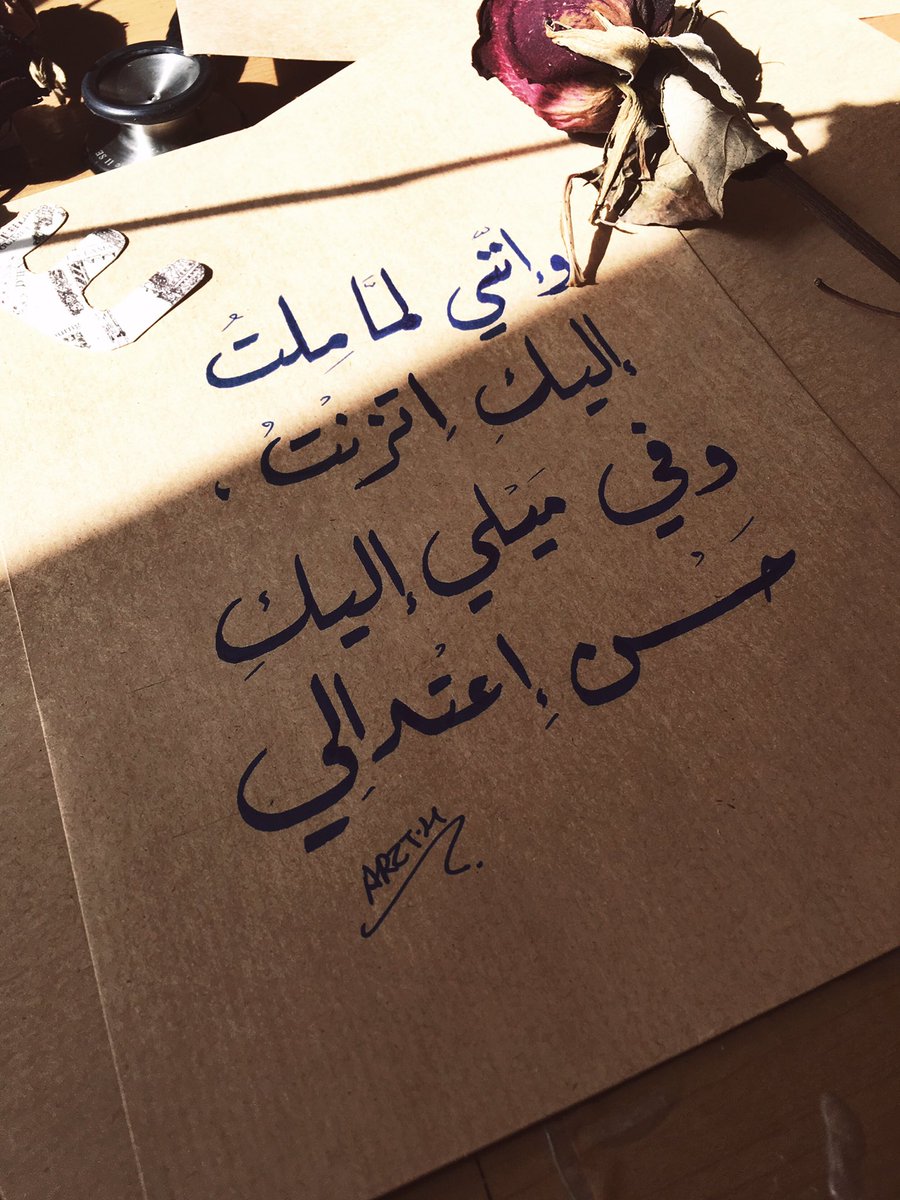 وإنّي لمَّا مِلتُ
إليكِ اِتزنْتُ.
وفي ميَْلي إليكِ
حَسْن اِعتْدالِي
ARET.M